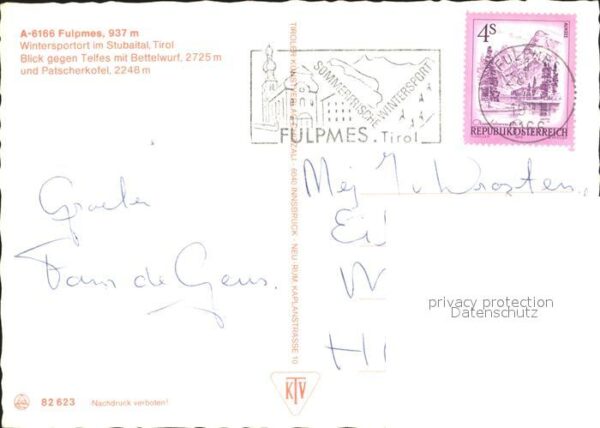 A-6166 Fulpmes, 937 m
Wintersportort im Stubaital, Tirol
Blick gegen Telfes mit Bettelwurf, 2725 m
und Patscherkofel, 2248 m
SOMMERFRISCHE WINTERSPORT
FULPMES. Tirol
4S
REPUBLIK ÖSTERREICH
FULPMES
6166
TIROLER KUNSTVERLAG 6040 INNSBRUCK - NEU-RUM, KAPLANSTRASSE 10
Groeten
Fam de
Mej
privacy protection
Datenschutz
KTV
82 623 Nachdruck verboten!